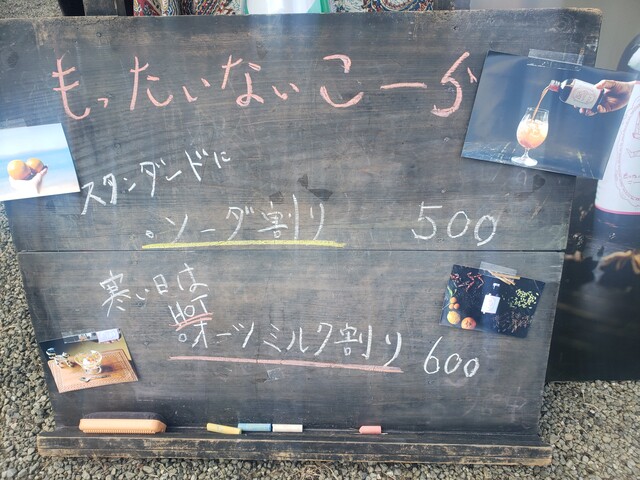 もったいないこーら
スタンダードに
・ソーダ割り 500
寒い日は
HOT
オーツミルク割り 600